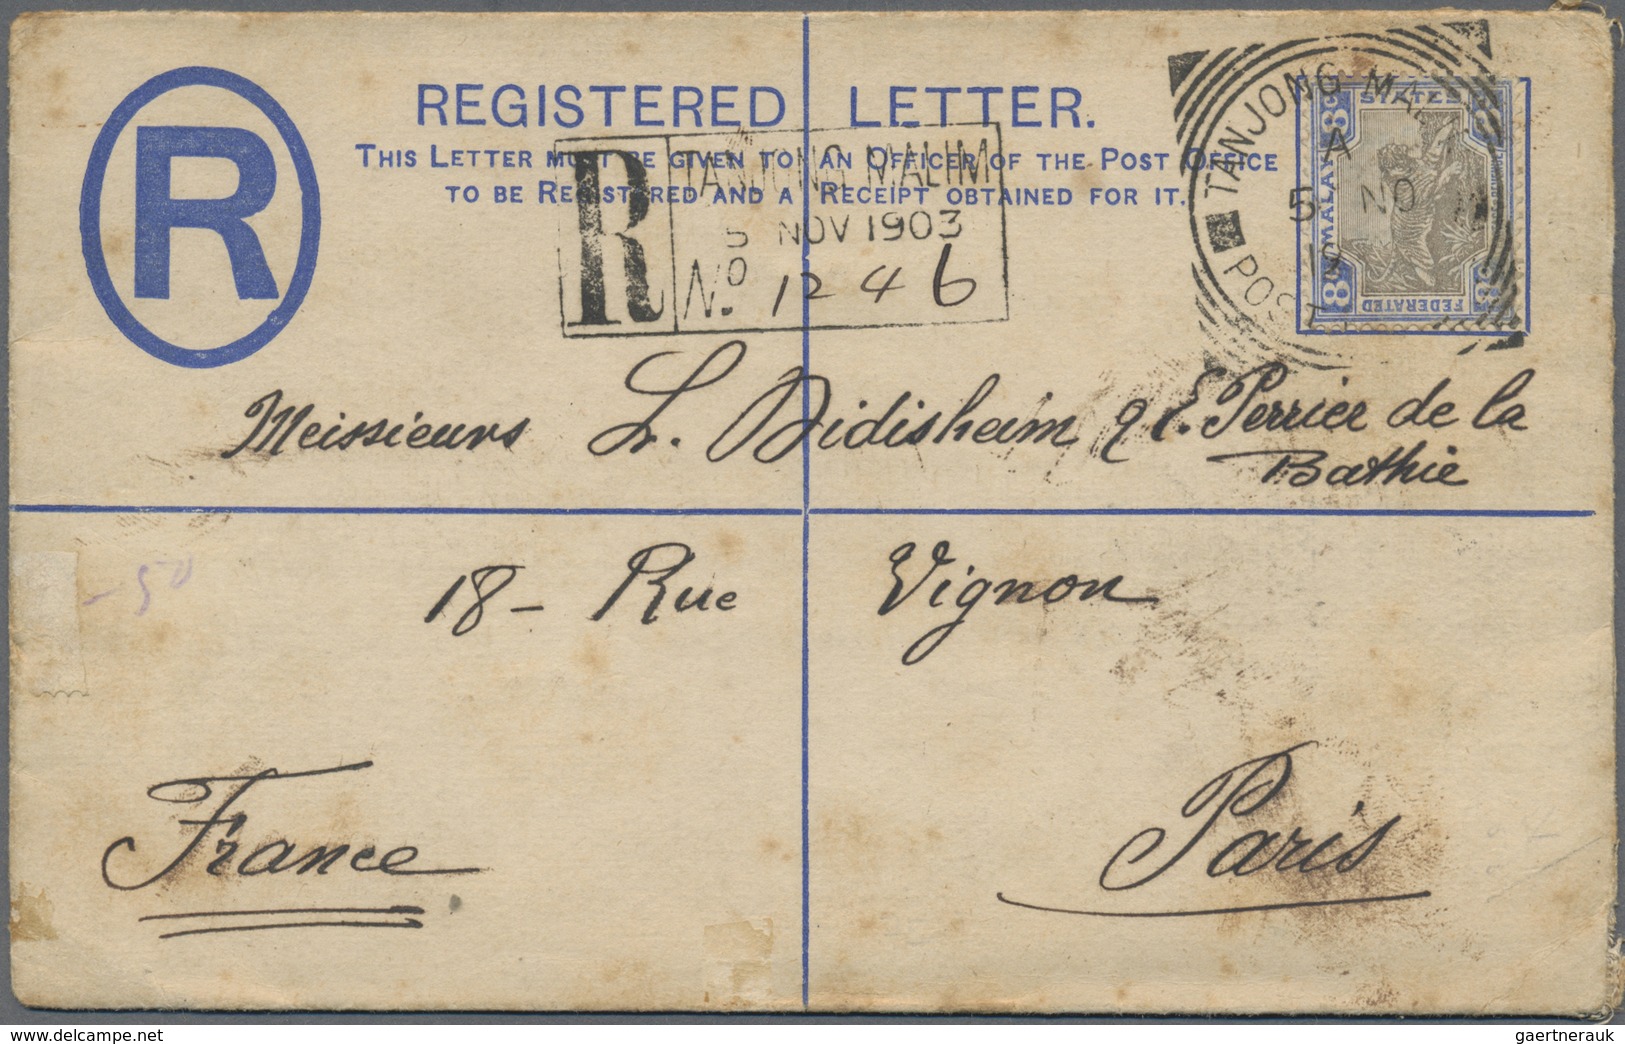 REGISTERED LETTER.
THIS LETTER MUST BE GIVEN TO AN OFFICER OF THE POST OFFICE
TO BE REGISTERED AND A RECEIPT OBTAINED FOR IT.
R
R
TANJONG MALIM
5 NOV 1903
No. 1246
TANJONG MAL
A
5 NO
19
POST
STATES
MALAY
FEDERATED
8c
8c
8c
Meissieurs L. Didisheim & E. Perrier de la
Bathie
18 - Rue Vignon
- 50
France
Paris
www.delcampe.net
gaertnerauk